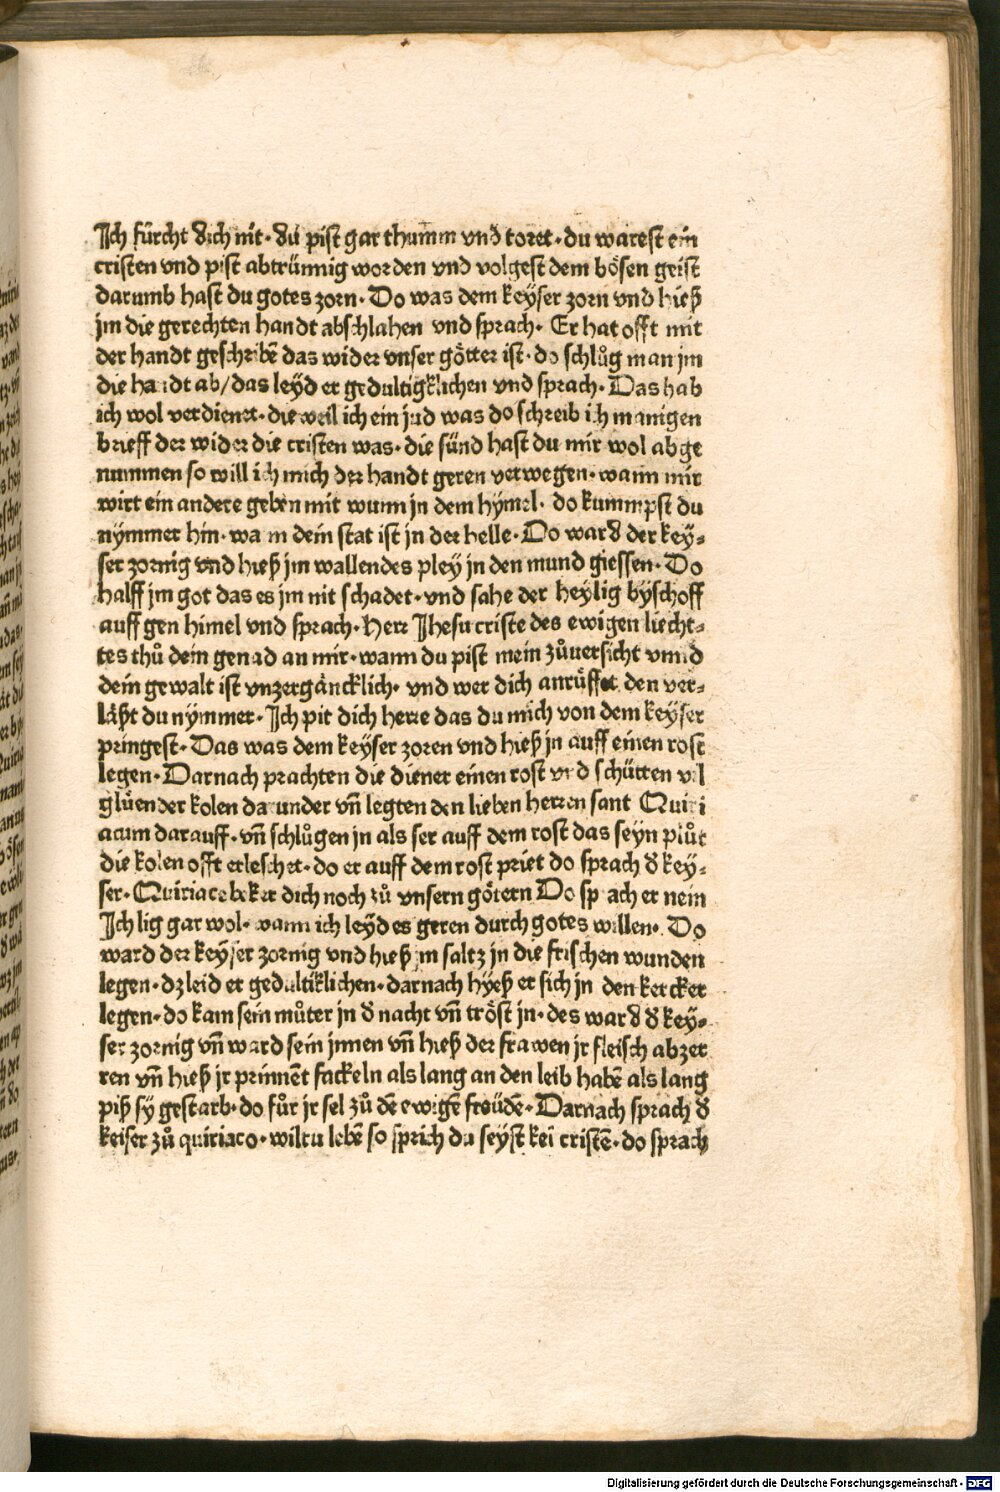 Ich fürcht dich nit· du pist gar thumm vnd toret· du warest ein
cristen vnd pist abtrünnig worden vnd volgest dem bösen geist
darumb hast du gotes zorn· Do was dem keÿser zorn vnd hieß
jm die gerechten handt abschlahen vnd sprach· Er hat offt mit
der handt geschribẽ das wider vnser götter ist· do schlůg man jm
die handt ab/das leÿd er gedultigklichen vnd sprach· Das hab
ich wol verdienet· die weil ich ein jud was do schreib ich manigen
brieff der wider die cristen was· die sünd hast du mir wol abge
nummen so will ich mich der handt geren verwegen· wann mir
wirt ein andere geben mit wunn in dem hÿmel· do kummpst du
nÿmmer hin· wann dein stat ist jn der helle· Do ward der keÿ⸗
ser zornig vnd hieß jm wallendes pleÿ jn den mund giessen· Do
halff jm got das es jm nit schadet· vnd sahe der heÿlig bÿschoff
auff gen himel vnd sprach· Herr Jhesu criste des ewigen liecht⸗
tes thů dein genad an mir· wann du pist mein zůuersicht vnnd
dein gewalt ist vnzergäncklich· vnd wer dich anrüffet den ver⸗
läßt du nÿmmer· Ich pit dich herre das du mich von dem keÿser
pringest· Das was dem keÿser zoren vnd hieß jn auff einen rost
legen· Darnach prachten die diener einen rost vnd schütten vil
glüender kolen darunder vñ legten den lieben herren sant Quiri
acum darauff· vñ schlůgen jn als ser auff dem rost das seyn plůt
die kolen offt erleschet· do er auff dem rost priet do sprach d keÿ⸗
ser· Quiriace beker dich noch zů vnsern götern Do sprach er nein
Ich lig gar wol· wann ich leÿd es geren durch gotes willen· Do
ward der keÿser zornig vnd hieß jm saltz jn die frischen wunden
legen· dz leid er gedultiklichen· darnach hÿeß er sich jn den kercker
legen· do kam sein můter jn d nacht vñ tröst jn· des ward d keÿ⸗
ser zornig vñ ward sein jnnen vñ hieß der frawen jr fleisch abzer
ren vñ hieß jr prinnẽt fackeln als lang an den leib habẽ als lang
piß sÿ gestarb· do fůr jr sel zů dẽ ewigẽ freüdẽ· Darnach sprach d
keiser zů quiriaco· wiltu lebẽ so sprich du seÿst kei cristẽ· do sprach
Digitalisierung gefördert durch die Deutsche Forschungsgemeinschaft - DFG